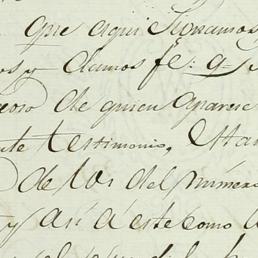 que aqui signamos
os y damos fé: q. s
eoso de quien aparese
nte testimonio, 
de los del número
y así á este como